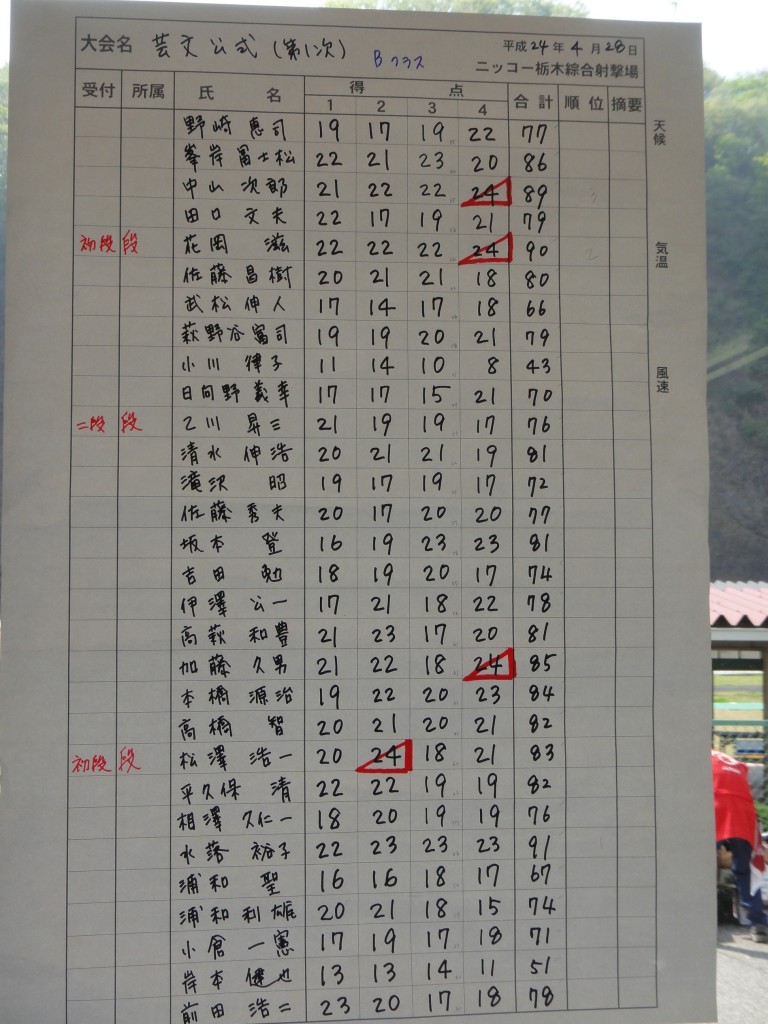 大会名 芸文公式(第1次) Bクラス 平成24年4月28日
ニッコー栃木綜合射撃場
受付 所属 氏名 得点 合計 順位 摘要
1 2 3 4
天候
気温
風速
野崎恵司 19 17 19 22 77
峯岸冨士松 22 21 23 20 86
中山次郎 21 22 22 24 89 3
田口文夫 22 17 19 21 79
初段 段 花岡滋 22 22 22 24 90 2
佐藤昌樹 20 21 21 18 80
武松伸人 17 14 17 18 66
萩野谷富司 19 19 20 21 79
小川律子 11 14 10 8 43
日向野義幸 17 17 15 21 70
二段 段 乙川昇三 21 19 19 17 76
清水伸浩 20 21 21 19 81
滝沢昭 19 17 19 17 72
佐藤秀夫 20 17 20 20 77
坂本登 16 19 23 23 81
吉田勉 18 19 20 17 74
伊澤公一 17 21 18 22 78
高萩和豊 21 23 17 20 81
加藤久男 21 22 18 24 85
本橋源治 19 22 20 23 84
高橋智 20 21 20 21 82
初段 段 松澤浩一 20 24 18 21 83
平久保清 22 22 19 19 82
相澤久仁一 18 20 19 19 76
水落裕子 22 23 23 23 91
浦和聖 16 16 18 17 67
浦和利雄 20 21 18 15 74
小倉一憲 17 19 17 18 71
岸本健也 13 13 14 11 51
前田浩二 23 20 17 18 78